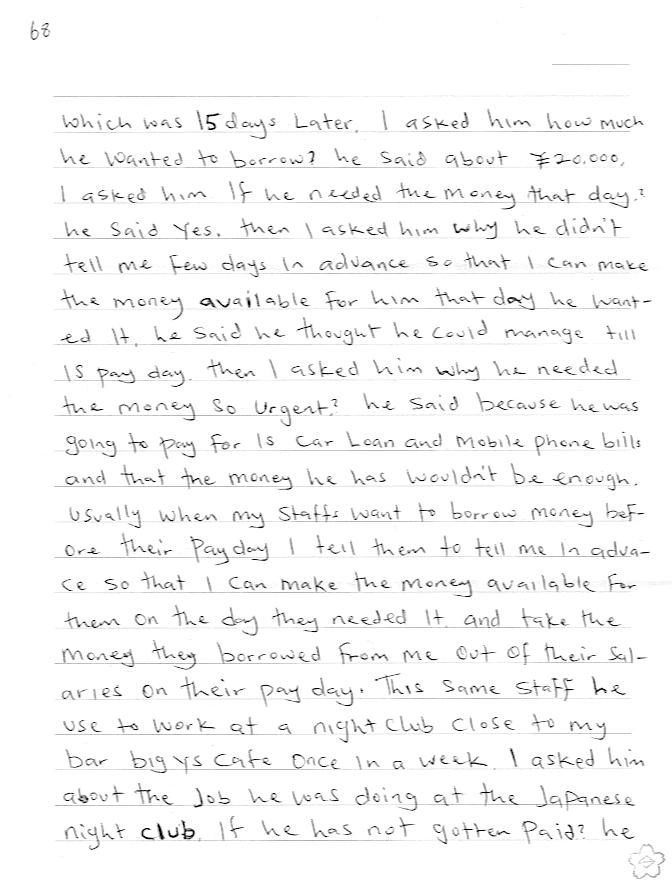 68
which was 15 days Later, I asked him how much
he wanted to borrow? he said about ¥20,000,
I asked him If he needed the money that day.?
he said Yes. then I asked him why he didn't
tell me few days In advance so that I can make
the money available for him that day he want-
ed It. he said he thought he could manage till
Is pay day. then I asked him why he needed
the money so urgent.? he said because he was
going to pay for Is car Loan and mobile phone bills
and that the money he has wouldn't be enough.
Usually when my staffs want to borrow money bef-
ore their Payday I tell them to tell me In adva-
ce so that I can make the money available for
them on the day they needed It. and take the
money they borrowed from me out of their sal-
aries on their pay day. This same staff he
use to work at a night club close to my
bar big ys cafe once In a week. I asked him
about the Job he was doing at the Japanese
night club. If he has not gotten Paid? he